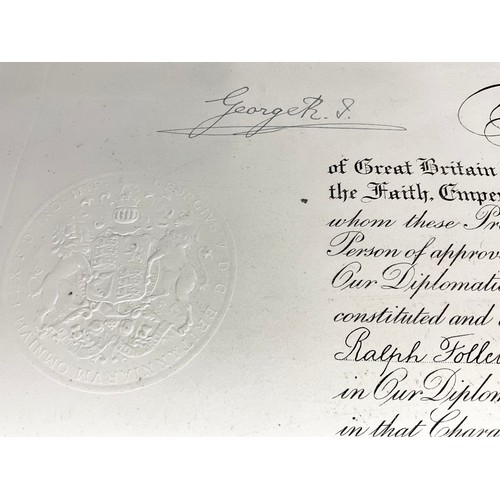 George R. I.
of Great Britain
the Faith, Empe
whom these Pr
Person of approv
Our Diplomati
constituted and
Ralph Folle
in Our Diplom
in that Chara